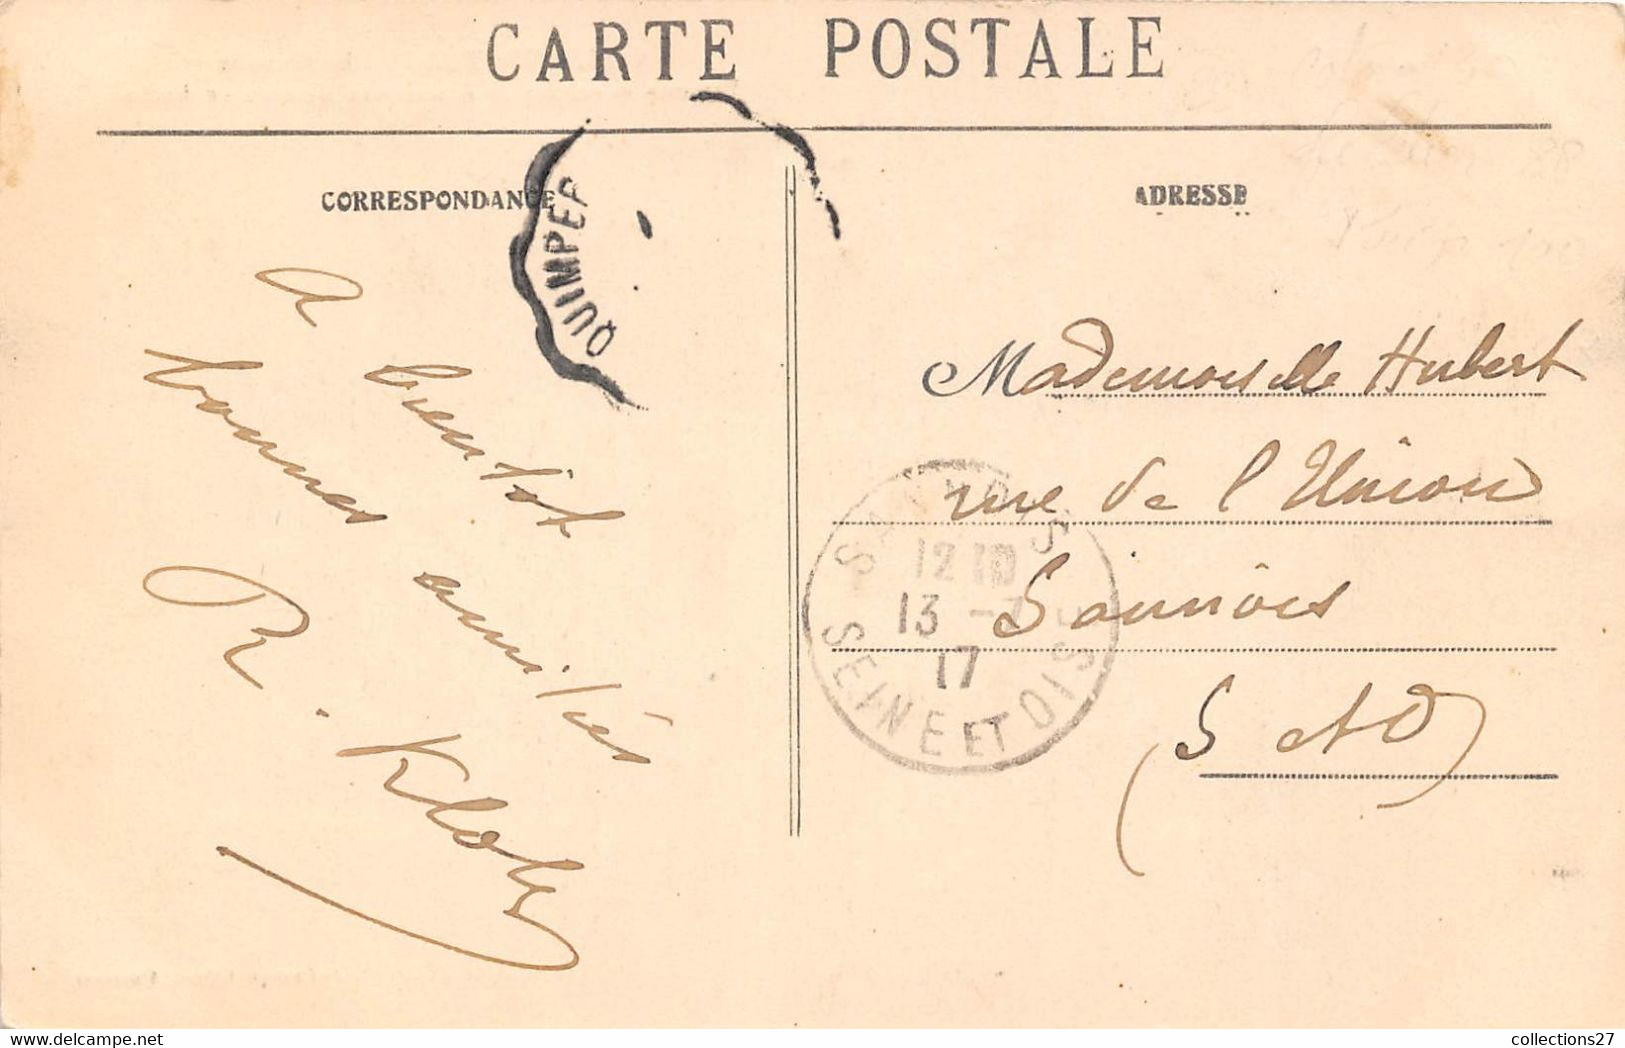 CARTE POSTALE
CORRESPONDANCE
ADRESSE
QUIMPER
A bientôt
bonnes amitiés
R. Klotz
Mademoiselle Hubert
rue de l'Union
Sannois
(S et O)
SANNOIS
12 10
13 -7
17
SEINE ET OISE
collections27